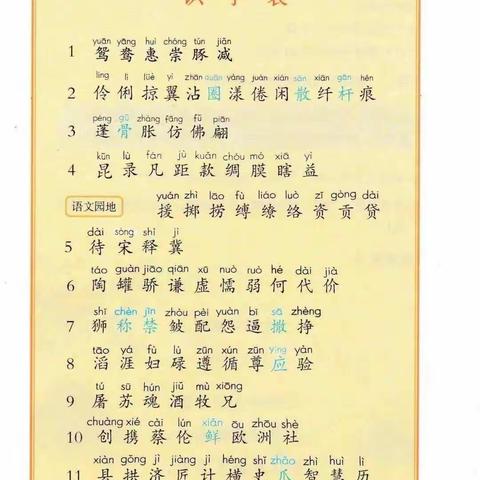 识字表
yuān yāng huì chóng tún jiǎn
1 鸳 鸯 惠 崇 豚 减
líng lì lüè yì zhān quān yàng juàn xián sàn xiān gān hén
2 伶 俐 掠 翼 沾 圈 漾 倦 闲 散 纤 杆 痕
péng gǔ zhàng fǎng fú piān
3 蓬 骨 胀 仿 佛 翩
kūn lù fán jù kuǎn chóu mó xiā yì
4 昆 录 凡 距 款 绸 膜 瞎 益
yuán zhì lāo fù liáo luò zī gòng dài
语文园地 援 掷 捞 缚 缭 络 资 贡 贷
dài sòng shì jì
5 待 宋 释 冀
táo guàn jiāo qiān xū nuò ruò hé dài jià
6 陶 罐 骄 谦 虚 懦 弱 何 代 价
shī chèn jīn zhòu pèi yuàn bī sā zhèng
7 狮 称 禁 皱 配 怨 逼 撒 挣
tāo yá fù lù zūn xún zūn yìng yàn
8 滔 涯 妇 碌 遵 循 尊 应 验
tú sū hún jiǔ mù xiōng
9 屠 苏 魂 酒 牧 兄
chuàng xié cài lún xiān ōu zhōu shè
10 创 携 蔡 伦 鲜 欧 洲 社
xiàn gǒng jì jiàng jì héng shǐ zhǎo zhì huì lì
11 县 拱 济 匠 计 横 史 爪 智 慧 历